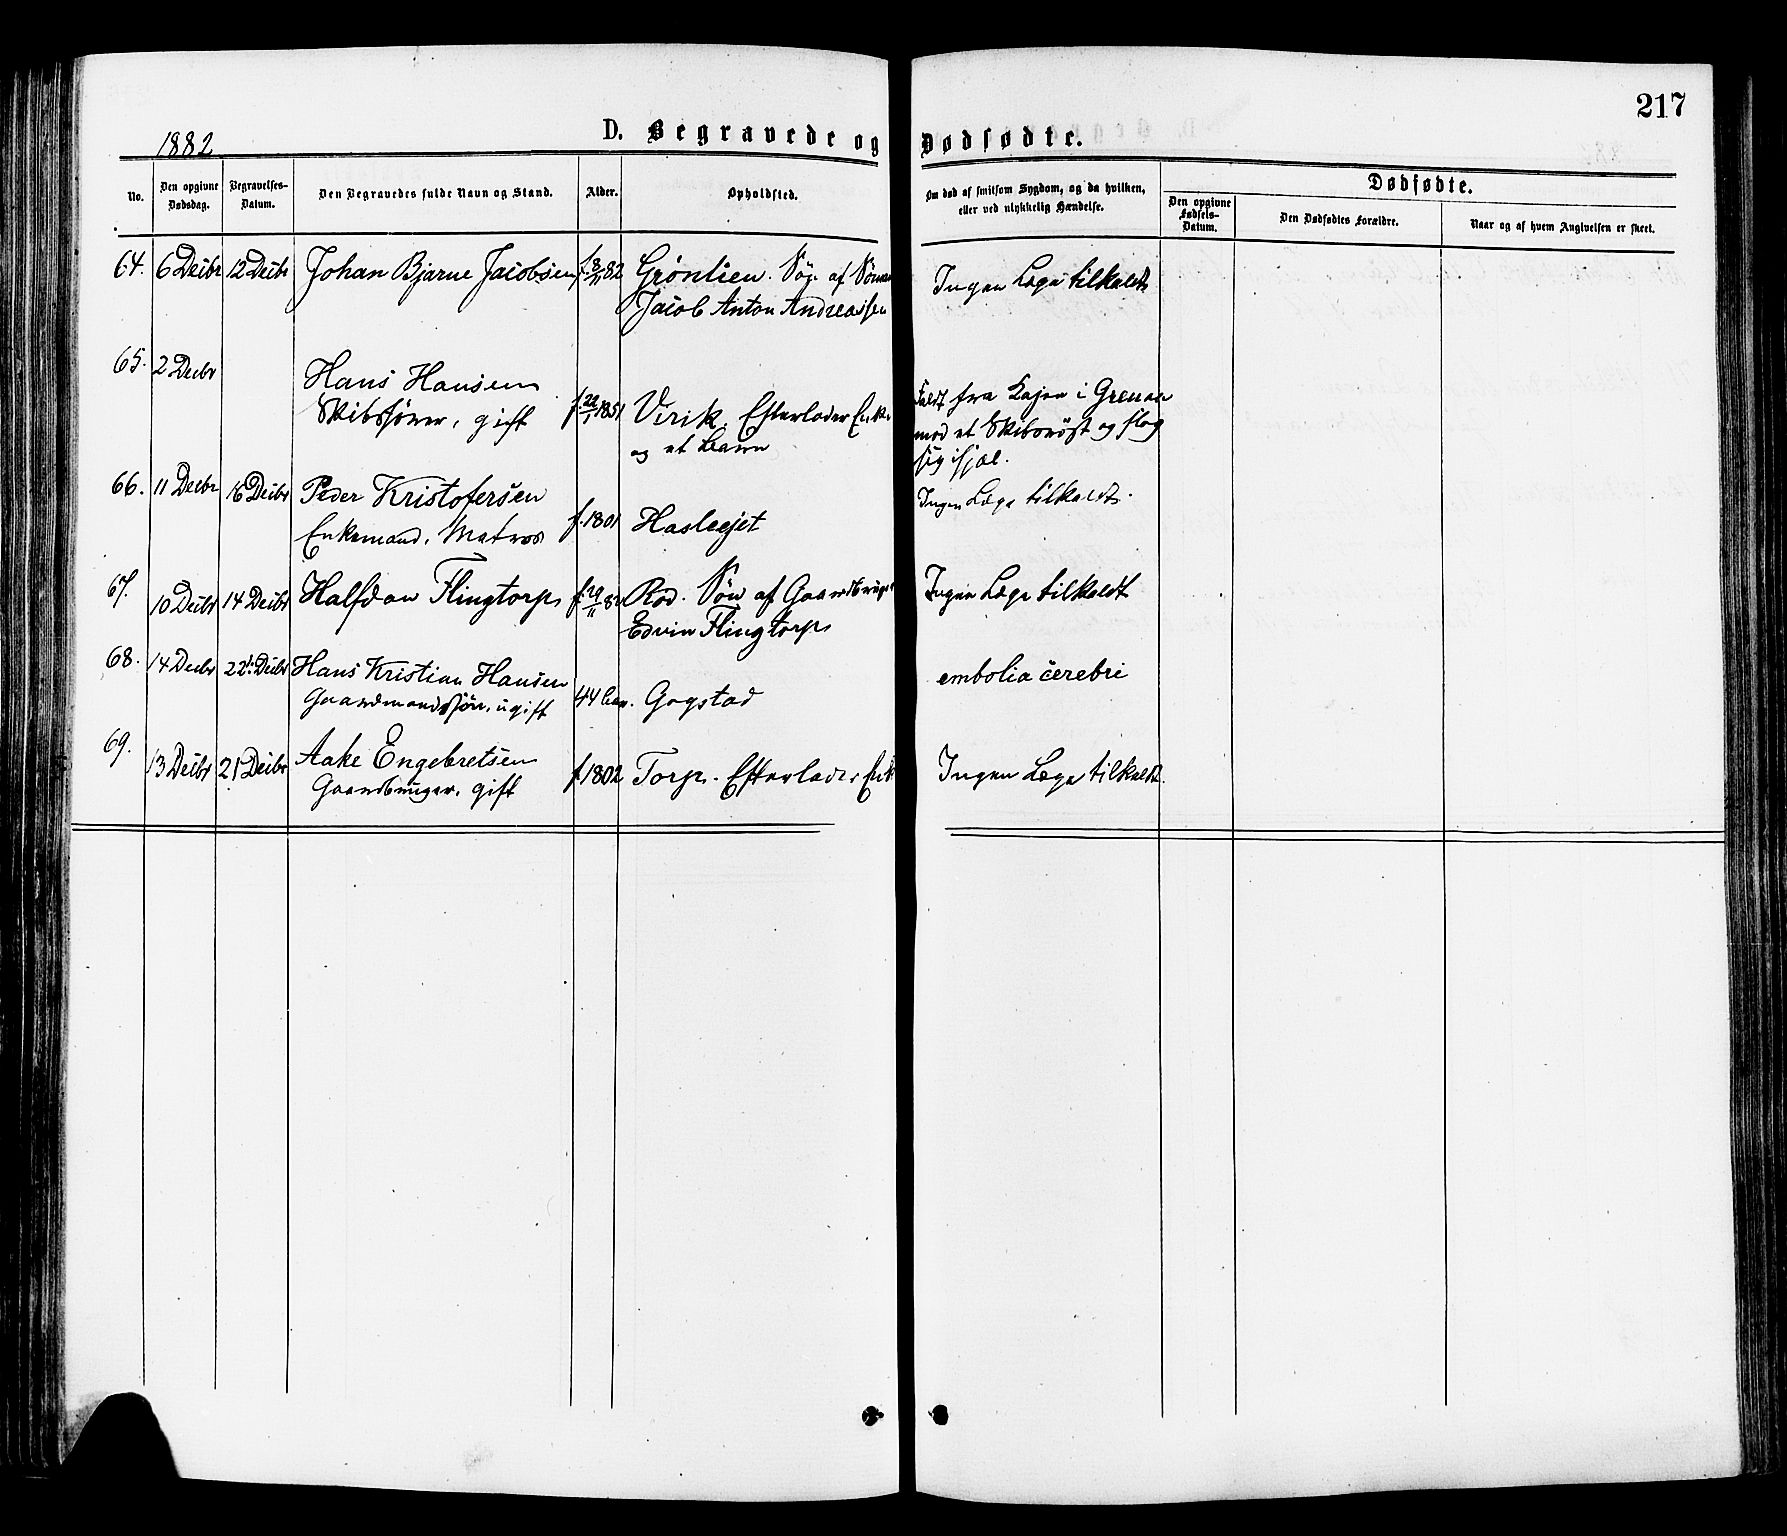 217
1882
D. Begravede og Dødfødte.
No.
Den opgivne Dødsdag.
Begravelses-Datum.
Den Begravedes fulde Navn og Stand.
Alder.
Opholdsted.
Om død af smitsom Sygdom, og da hvilken,
eller ved ulykkelig Hændelse.
Dødfødte.
Den opgivne Fødsels-Datum.
Den Dødfødtes Forældre.
Naar og af hvem Angivelsen er skeet.
64. 6 Decbr 12 Decbr Johan Bjarne Jacobsen f. 8/11 82 Grøntlien. Søn af Sømand Ingen Læge tilkaldt
Jacob Anton Andreassen
65. 2 Decbr
Hans Hansen
Skibsfører, gift f. 22/1 1851 Virik. Efterlader Enke Faldt fra Kajen i
og et Barn mod et Skibsrøst og slog
sig ihjæl.
66. 11 Decbr 16 Decbr Peder Kristofersen Ingen Læge tilkaldt.
Enkemand, Matros f. 1801 Hasleejet
67. 10 Decbr 14 Decbr Halfdan Flingtorp f. 29/11 82 Rød. Søn af Gaardbruger Ingen Læge tilkaldt
Edvin Flingtorp
68. 14 Decbr 22 Decbr Hans Kristian Hansen embolia cerebri
Gaardmandssøn, ugift 44 Aar. Gogstad
69. 13 Decbr 21 Decbr Aake Engebretsen
Gaardbruger, gift f. 1802 Torp. Efterlader Enk Ingen Læge tilkaldt.